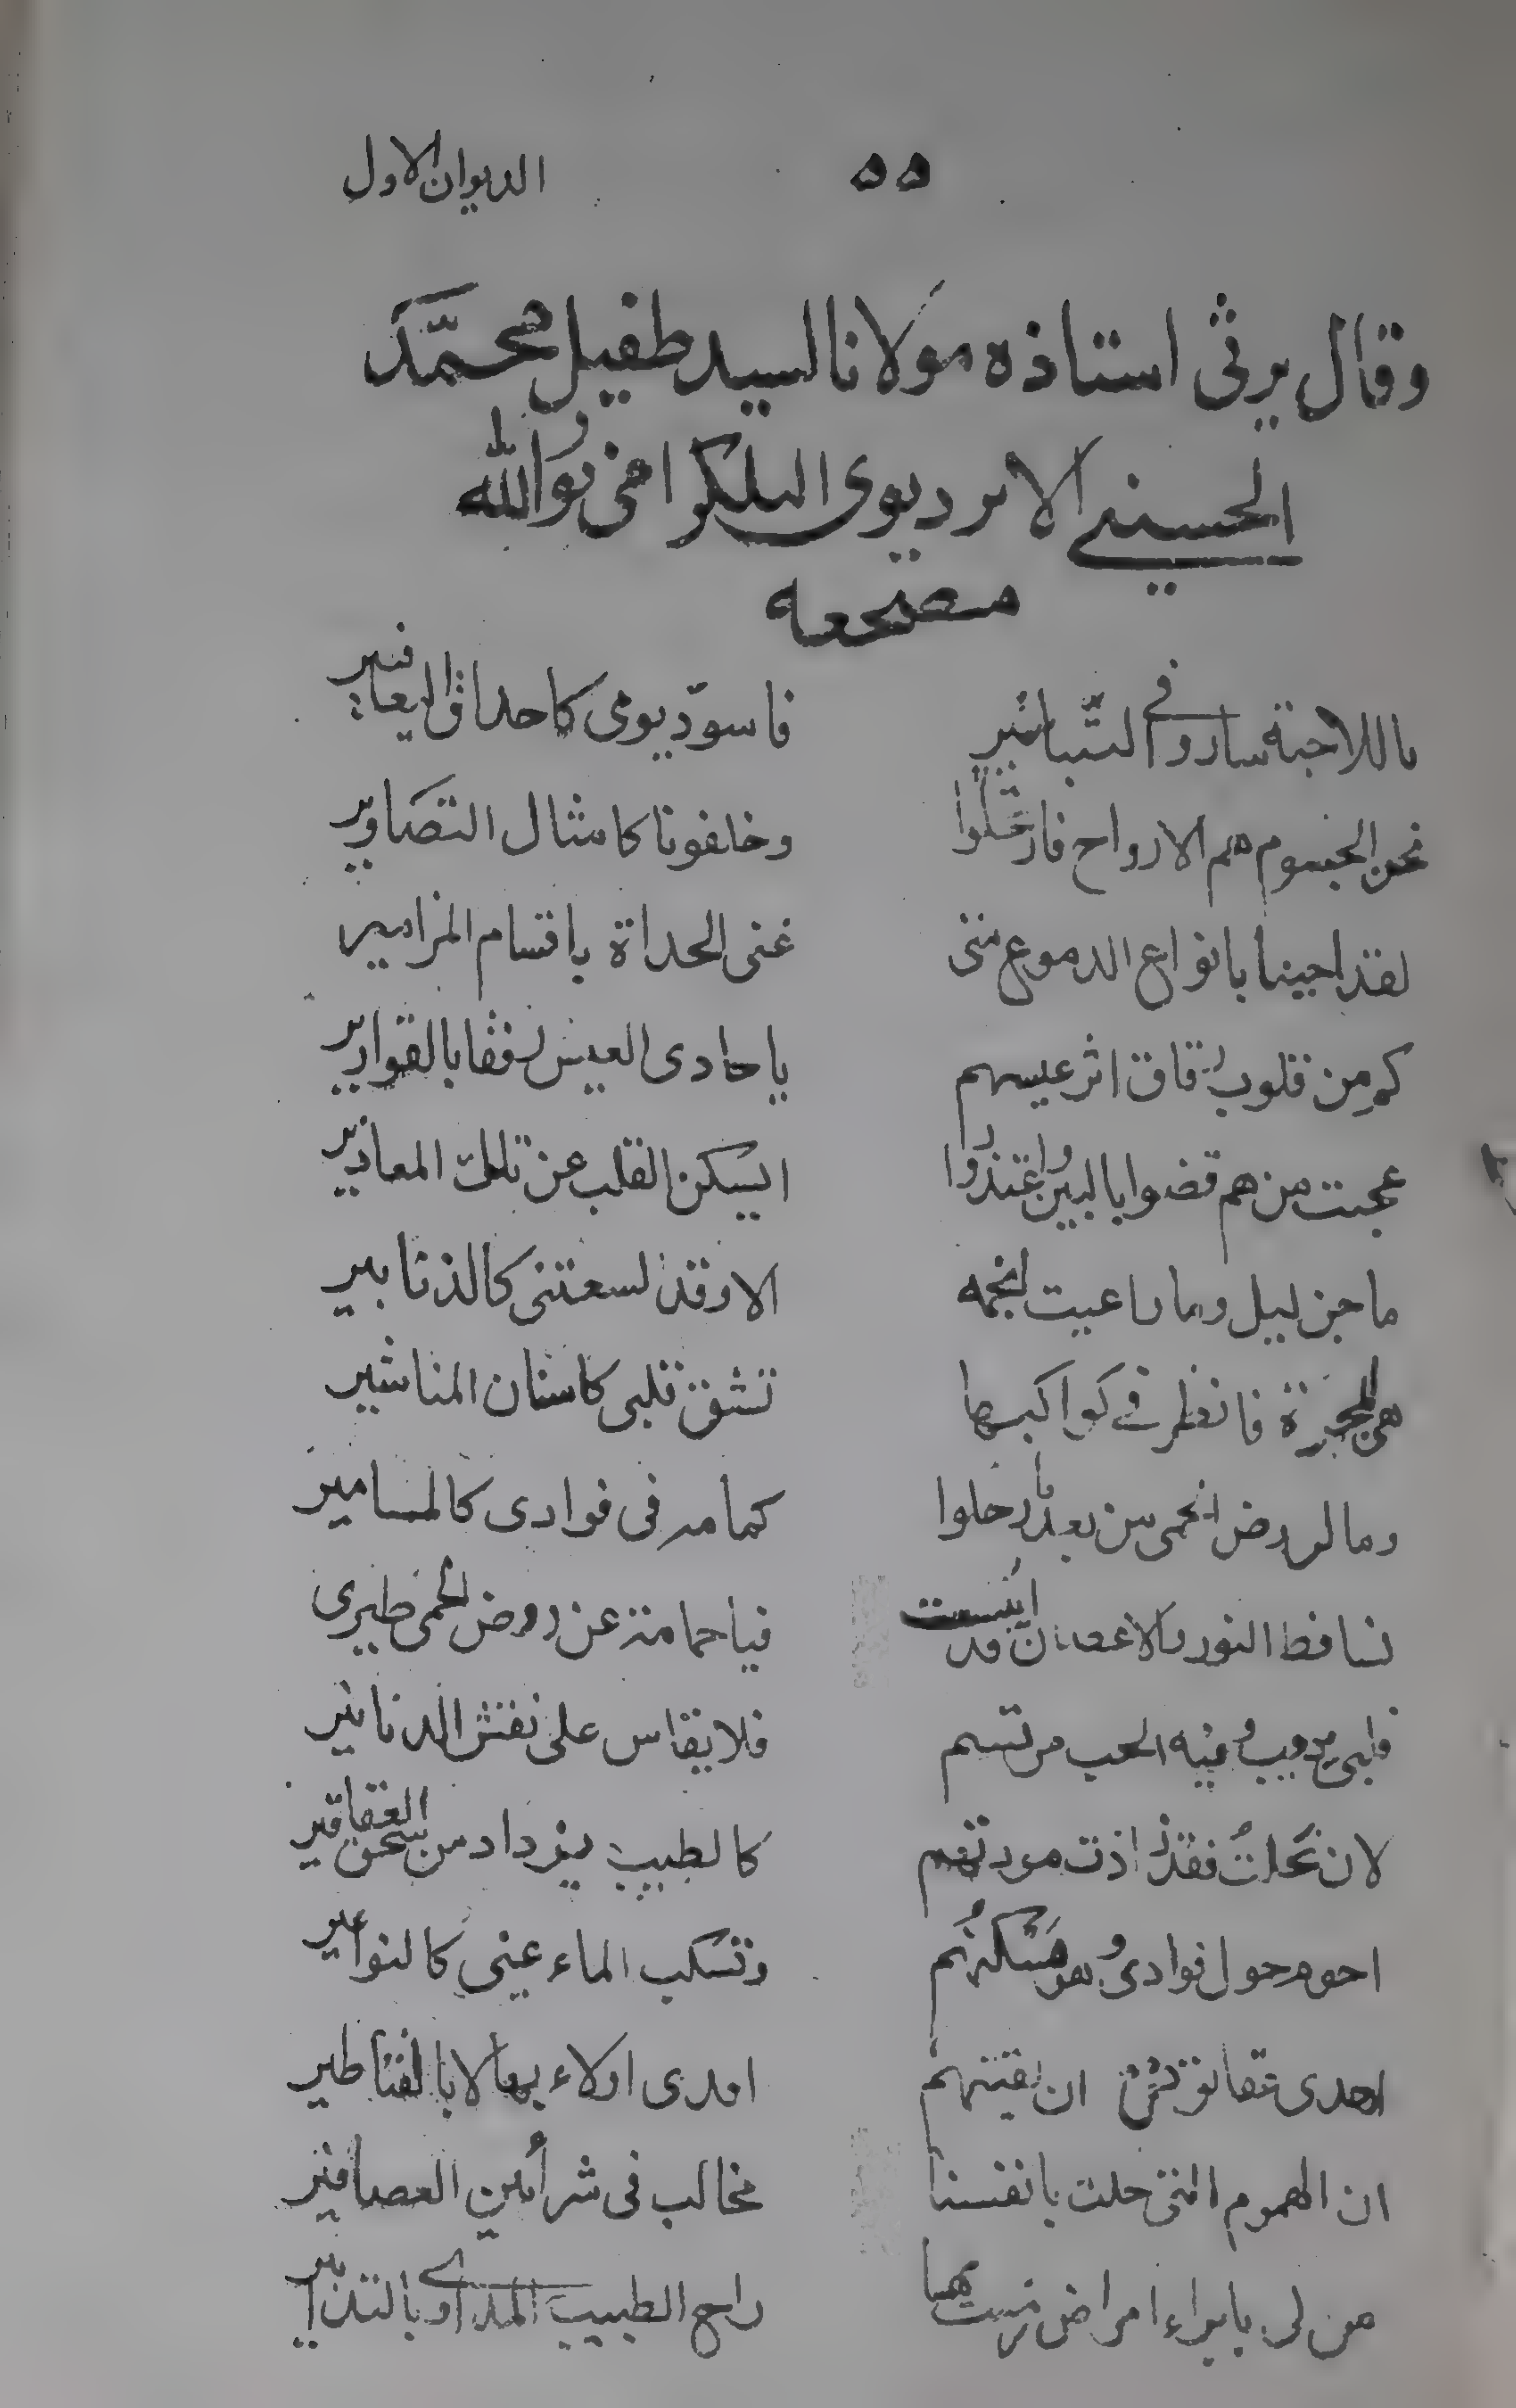 ٥٥ الديوان الاول
وقال يرثى استاذه مولانا السيد طفيل محمّد
الحسيني الاترديوى البلكرامى نوّر الله
مضجعه
ما للاحبة ساروا في التّباشير فاسودّ يومى كاحداق اليعافير
نحن الجسوم هم الارواح فارتحلوا وخلفونا كامثال التصاوير
لقد اجبنا بانواع الدموع متى غنى الحداة باقسام المزامير
كم من قلوب رقاق اثر عيسهم يا حادى العيس رفقا بالقوارير
عجبت من هم قضوا بالبين واعتذروا ايسكن القلب عن تلك المعاذير
ما جن ليل وما راعيت انجمه الا وقد لسعتنى كالذنابير
هى المجرة فانظر في كواكبها تشق قلبى كاسنان المناشير
وما لروض الحمى من بعد ما رحلوا كمامه فى فوادى كالمسامير
تساقط النور والاغصان قد ايبست فيا حمامة عن روض الحمى طيرى
قلبى يذوب وفيه الحب مرتسم فلا يقاس على نقش الدنانير
لان نحلت فقد زادت مودتهم كالطيب يزداد من سحق العقاقير
احوم حول فوادى وهو مسكنهم وتسكب الماء عينى كالنواعير
اهدى تقا ان لقيتهم افدى اولاء بها لا بالقناطير
ان الهموم التى حلت بانفسنا مخالب فى شرأيين العصافير
من لى بابراء امراض مرست بها راح الطبيب المداوي بالتدابير